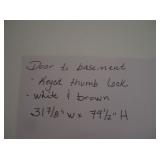 Door to basement
• Keyed thumb lock
• white & brown
31 7/8" W x 79 1/2" H